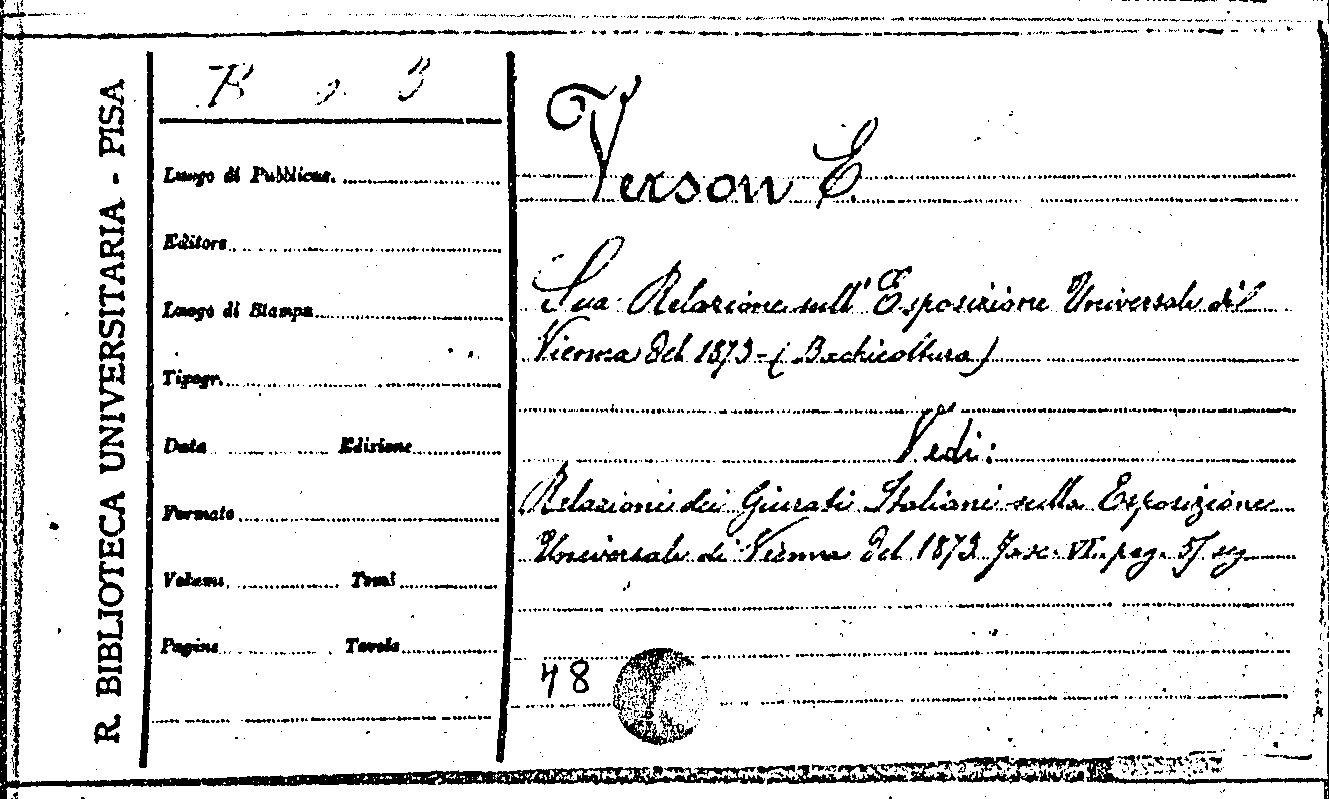 R. BIBLIOTECA UNIVERSITARIA - PISA
Luogo di Pubblicaz.
Editore
Luogo di Stampa
Tipogr.
Data Edizione
Formato
Volumi Tomi
Pagine Tavole
Verson E.
Sua Relazione sull' Esposizione Universale di
Vienna del 1873 - (Bachicoltura)
Vedi:
Relazioni dei Giurati Italiani sulla Esposizione
Universale di Vienna del 1873 Fasc. VI. pag. 57 sg
48